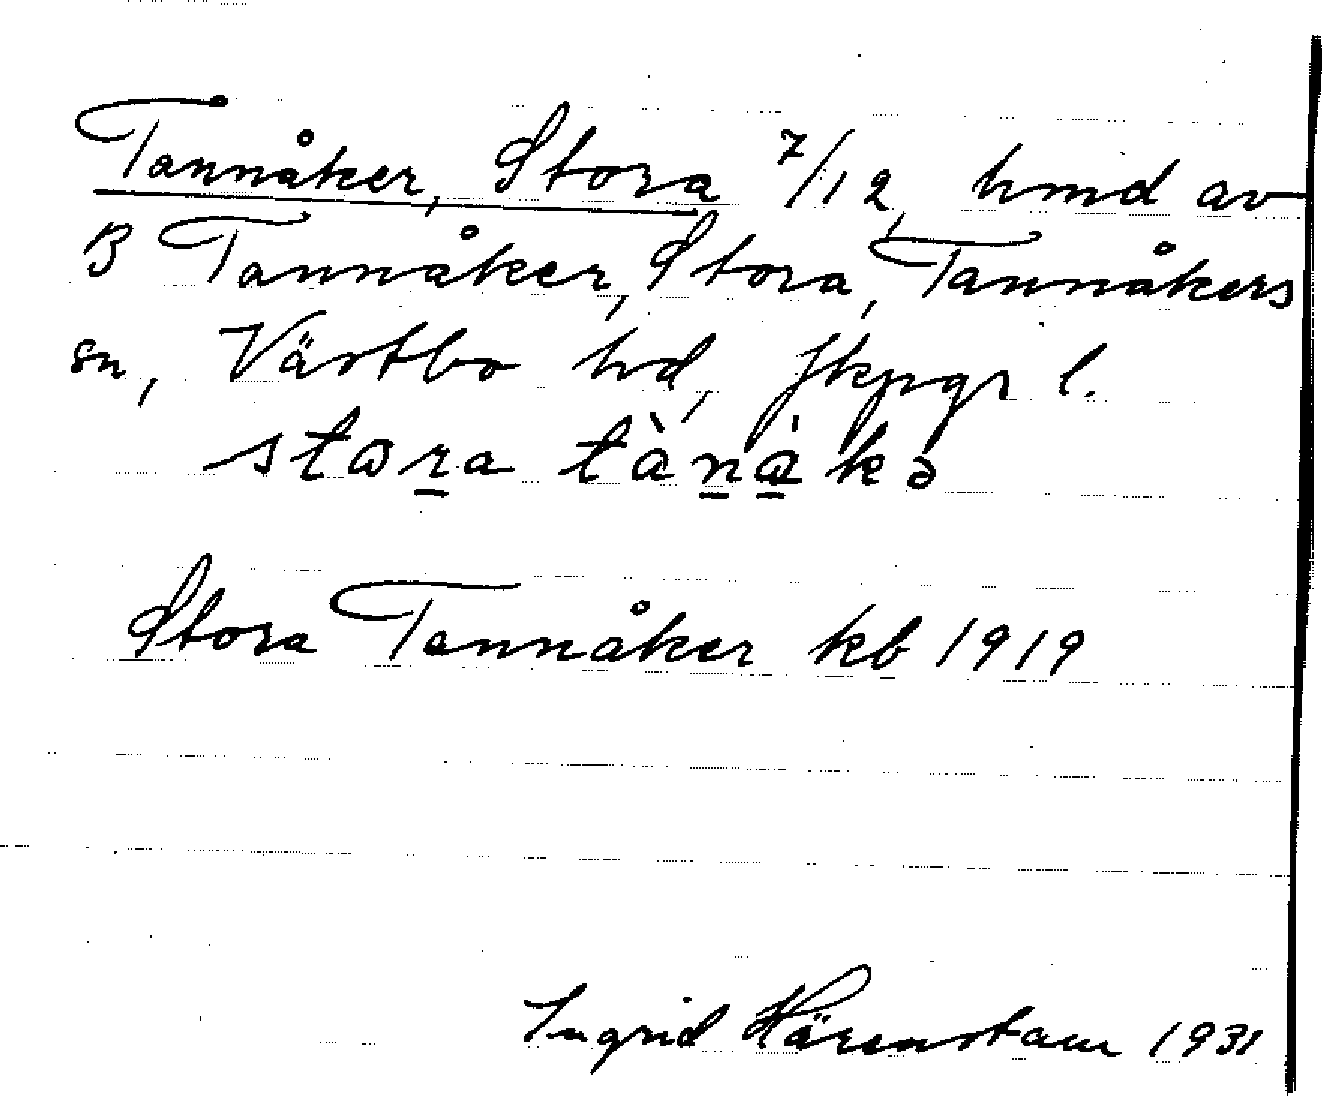 Tannåker, Stora 7/12, hmd av
B Tannåker, Stora, Tannåkers
sn, Västbo hd, Jkpgs l.
stɷra tànɷ̀kə
Stora Tannåker kb 1919
Ingrid Härenstam 1931